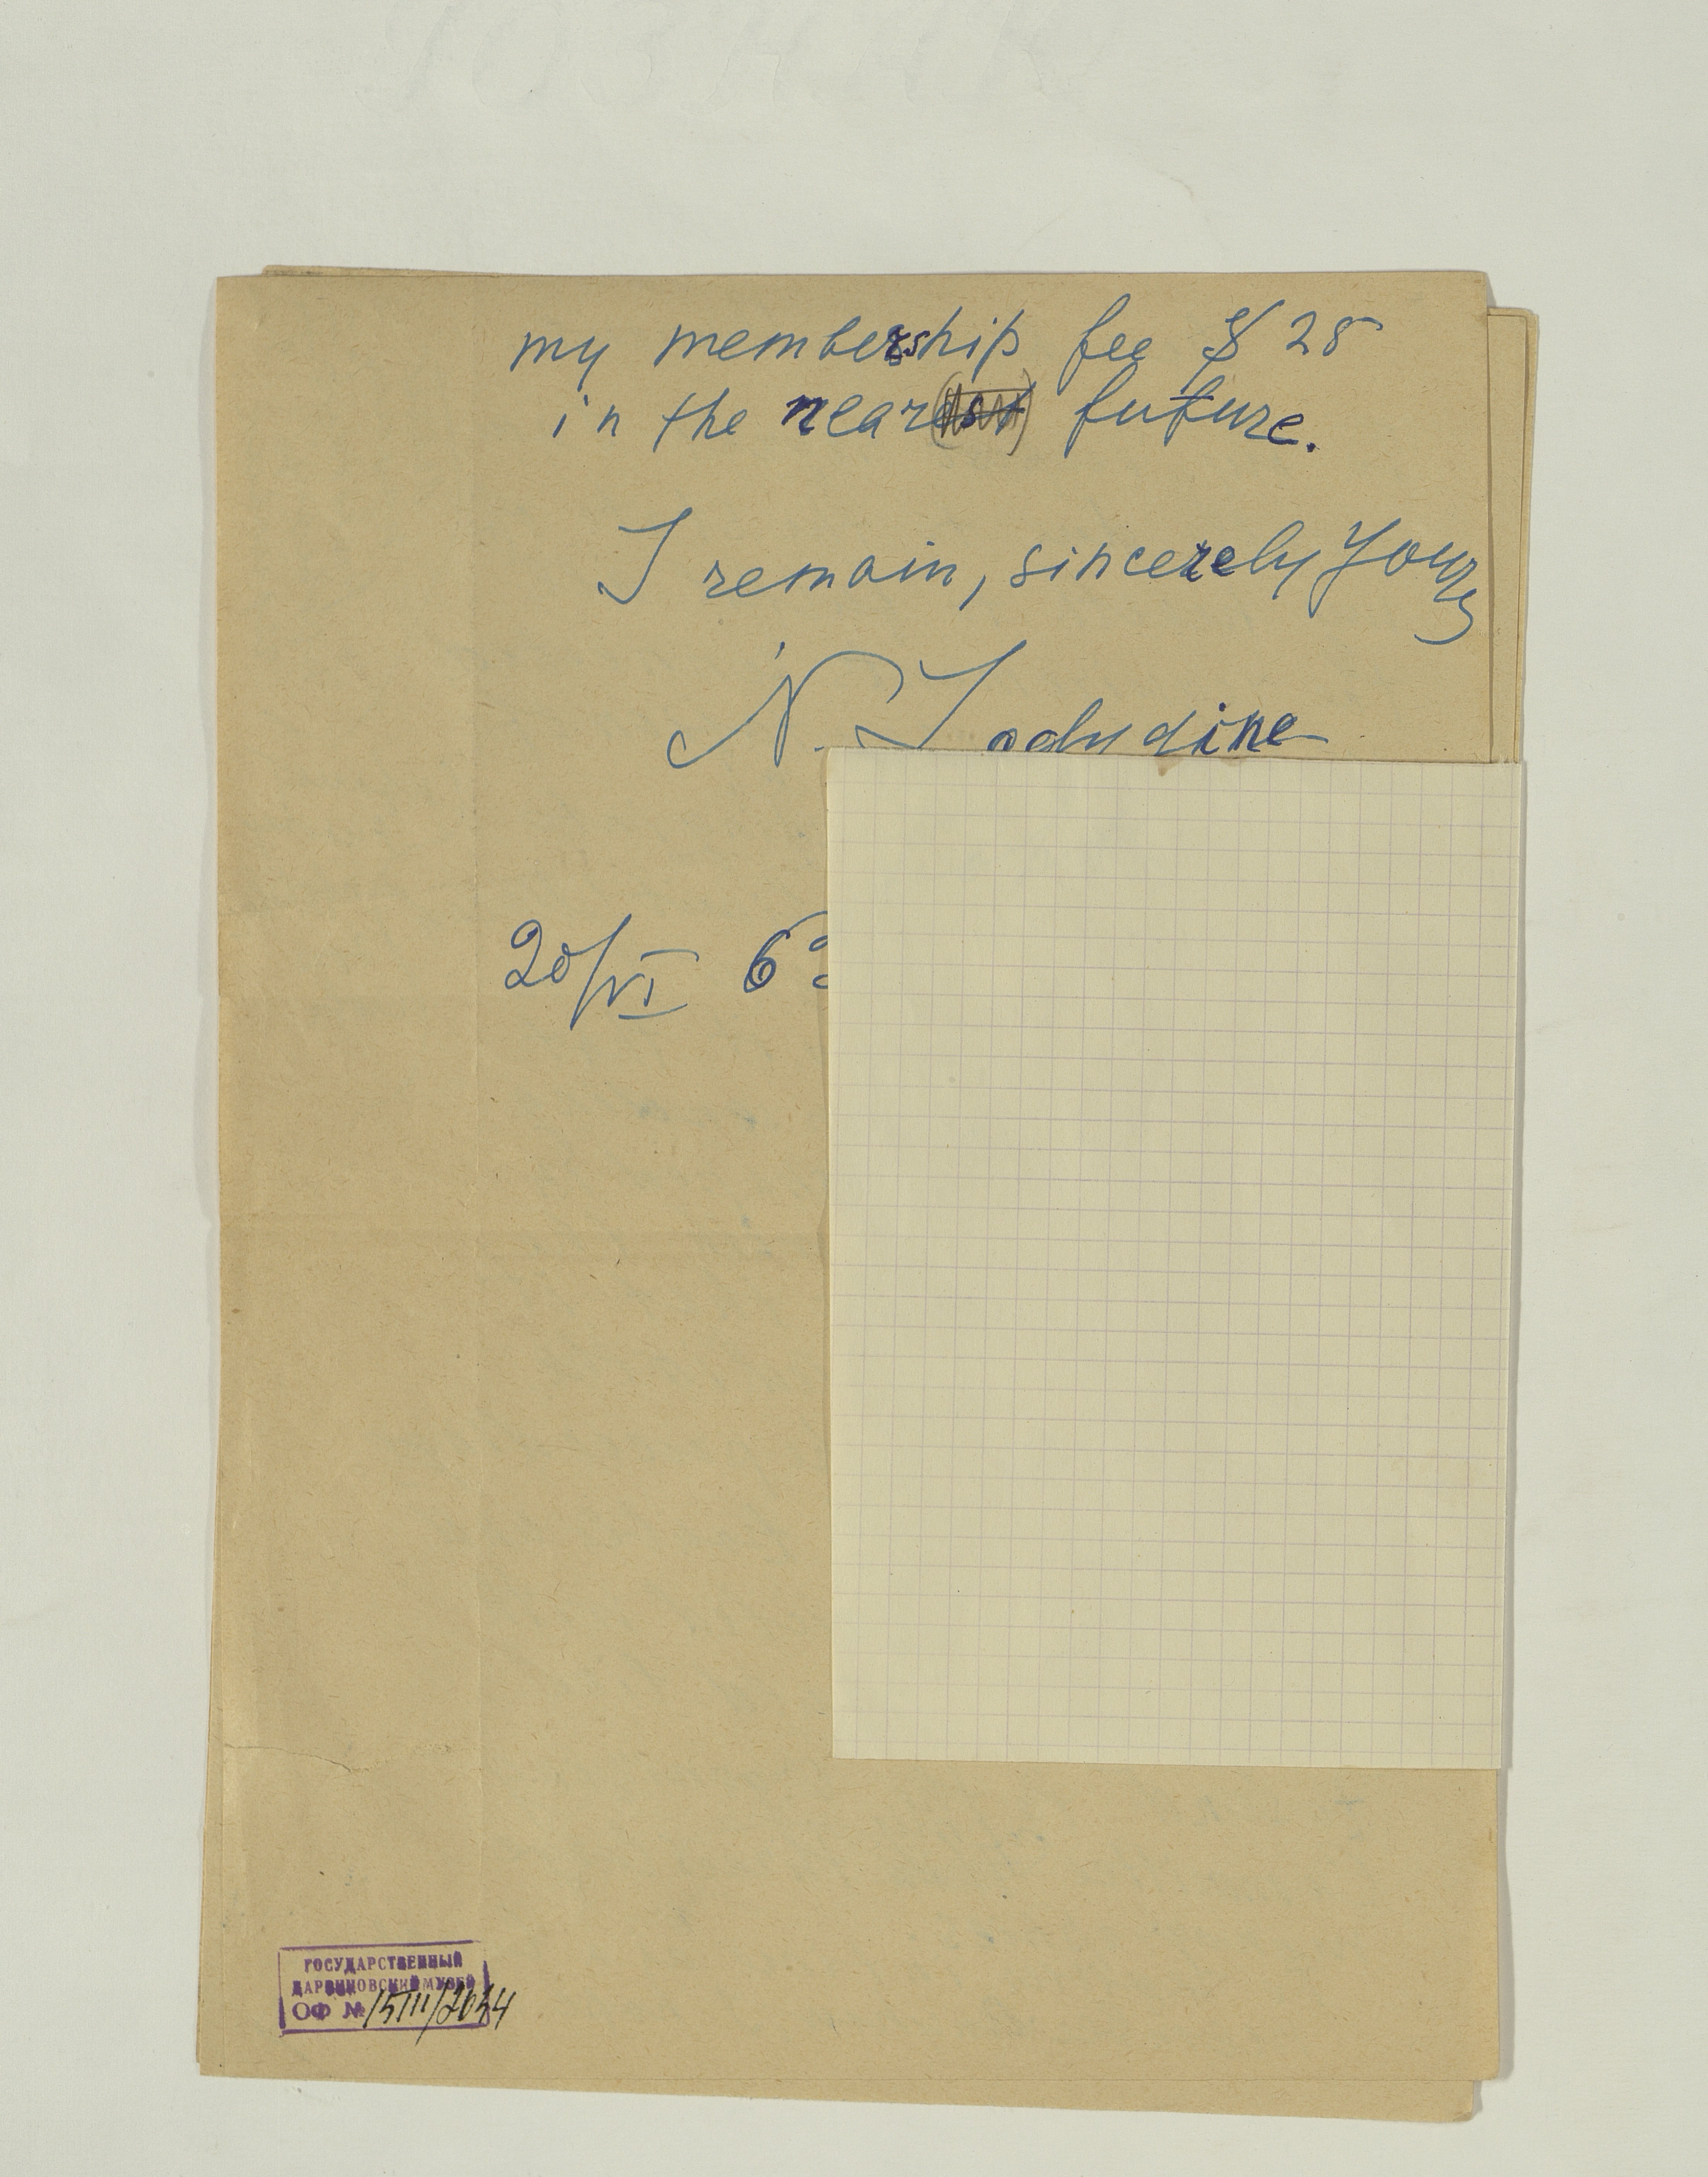 my membership fee $ 25
in the near future.
I remain, sincerely Yours
N. Ladydine
20/VI 63
ГОСУДАРСТВЕННЫЙ
ДАРВИНОВСКИЙ МУЗЕЙ
ОФ №